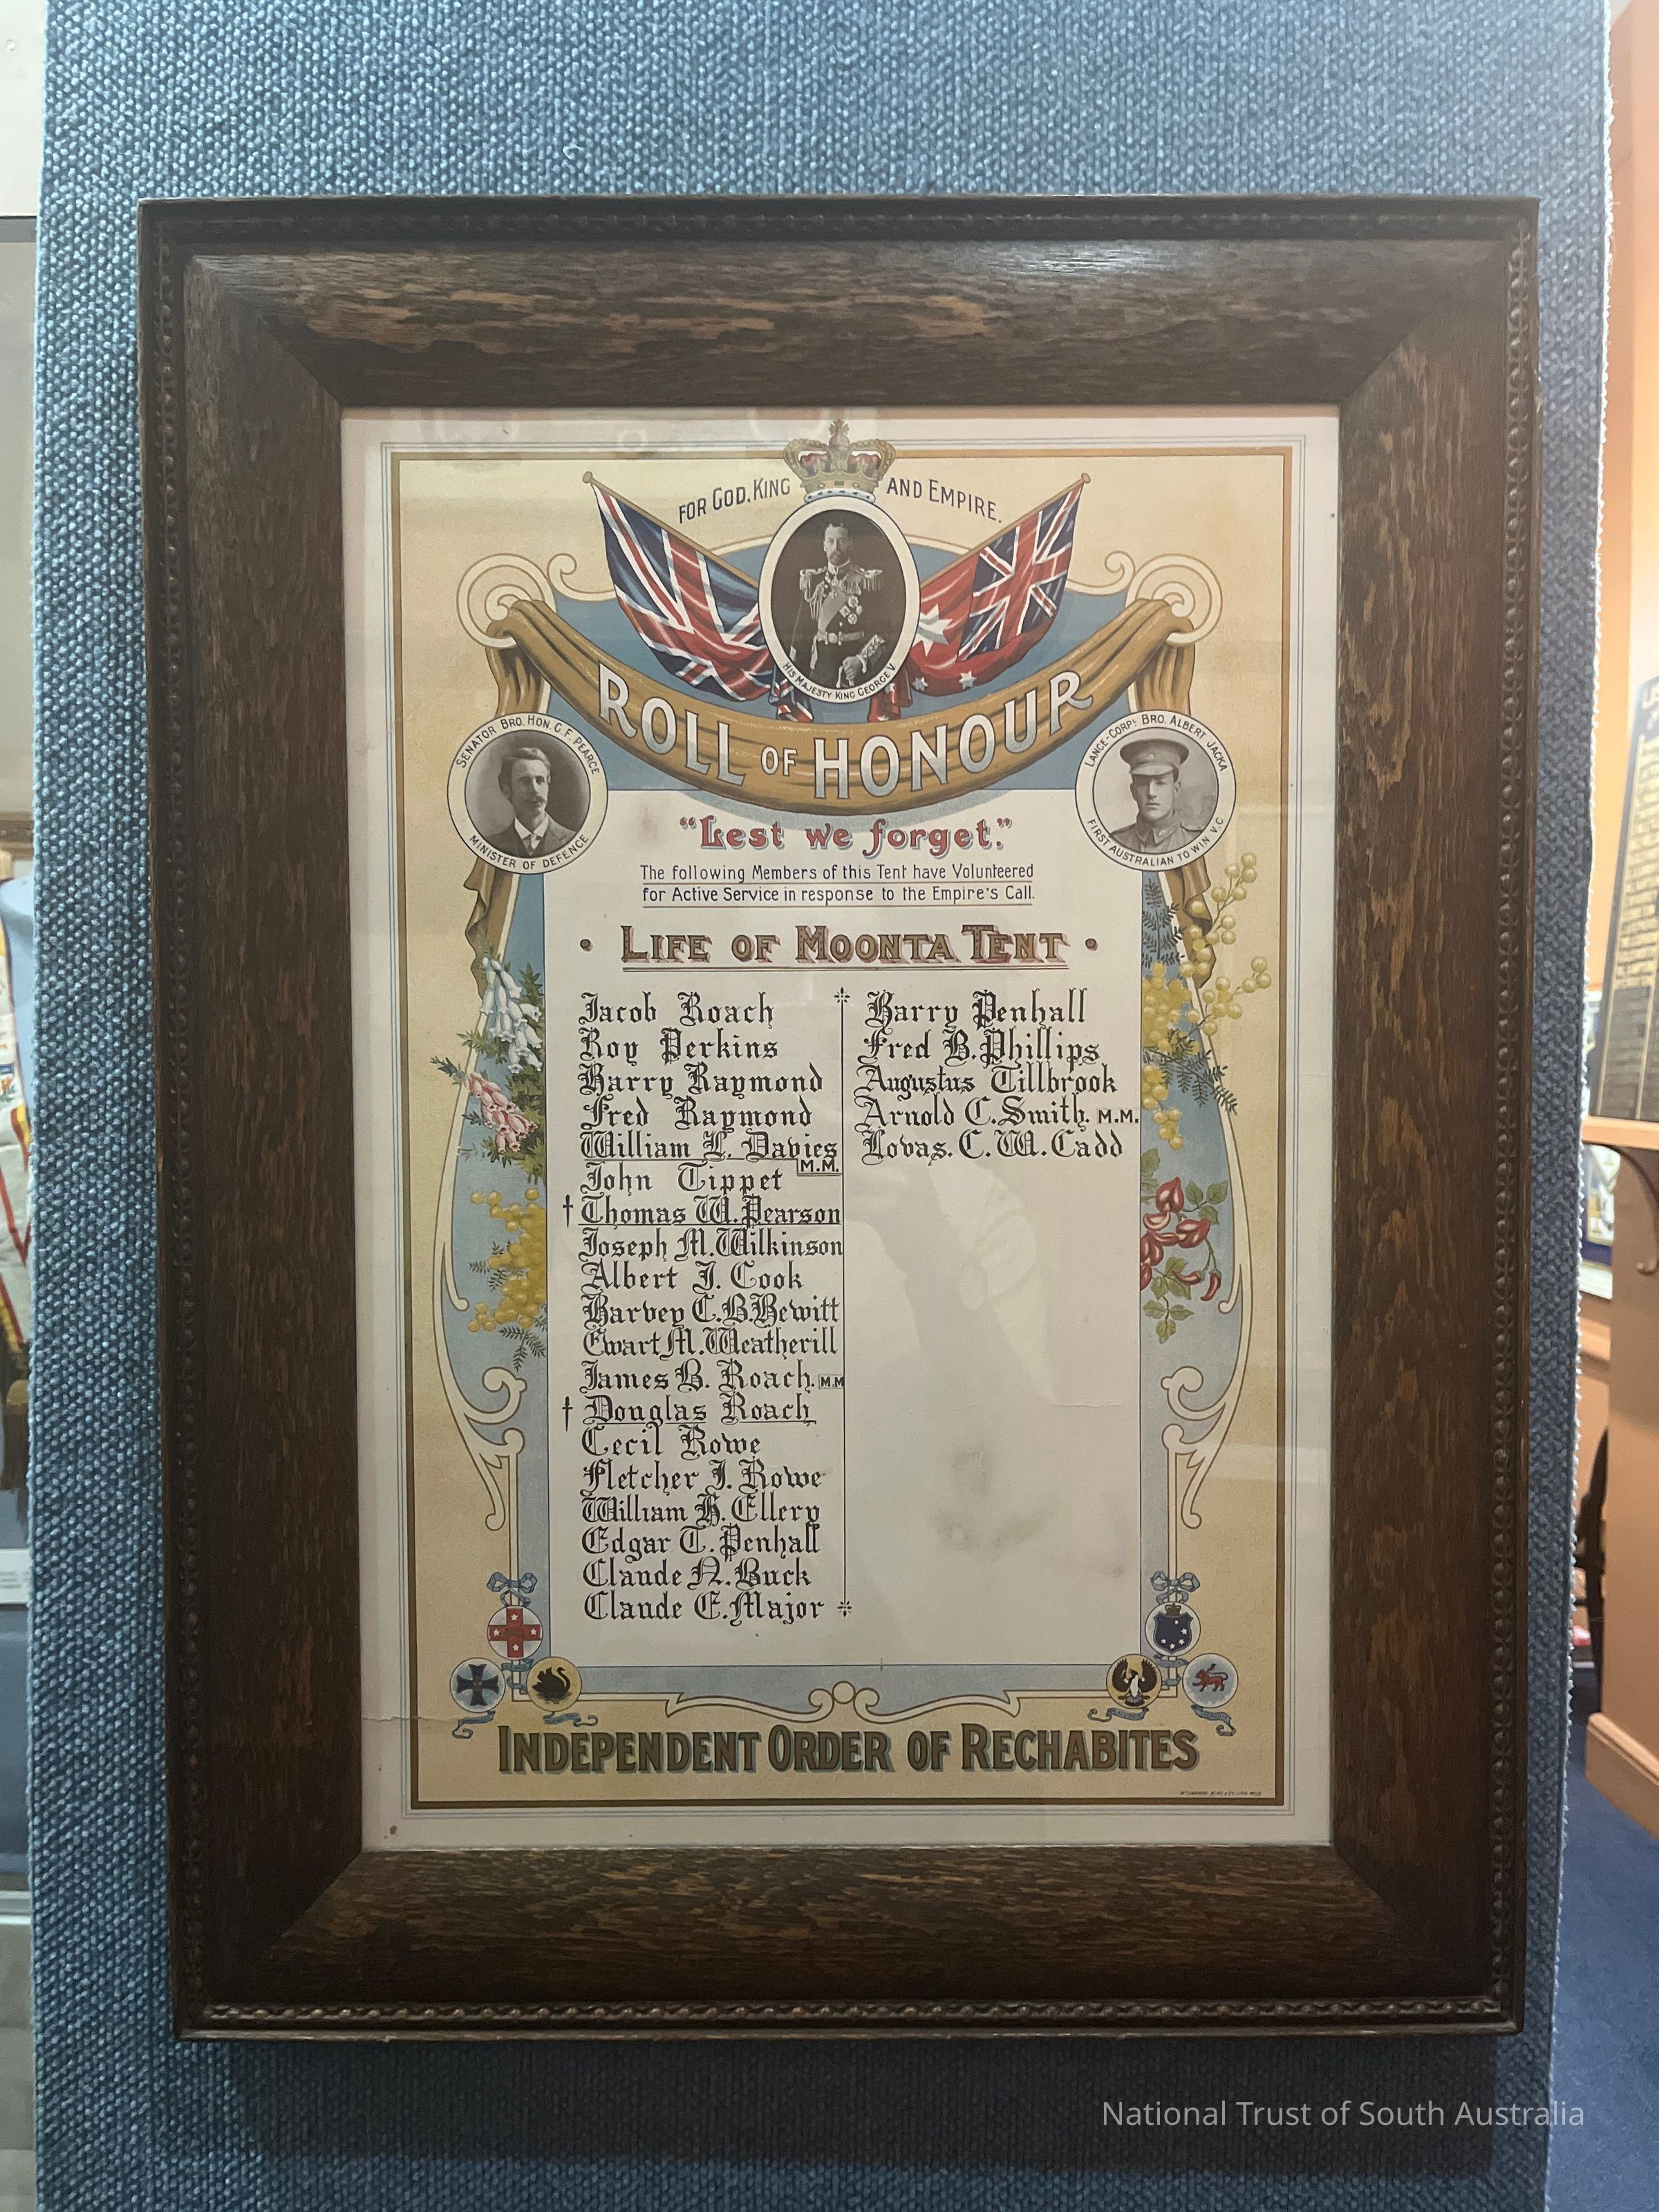 FOR GOD, KING AND EMPIRE.
HIS MAJESTY KING GEORGE V
ROLL OF HONOUR
SENATOR BRO. HON. G. F. PEARCE
MINISTER OF DEFENCE
LANCE-CORPL BRO. ALBERT JACKA
FIRST AUSTRALIAN TO WIN V.C.
"Lest we forget."
The following Members of this Tent have Volunteered
for Active Service in response to the Empire's Call.
• LIFE OF MOONTA TENT •
Jacob Roach
Roy Perkins
Harry Raymond
Fred Raymond
William L. Davies M.M.
John Tippet
† Thomas W. Pearson
Joseph M. Wilkinson
Albert J. Cook
Harvey C. B. Hewitt
Ewart M. Weatherill
James B. Roach. M.M
† Douglas Roach
Cecil Rowe
Fletcher J. Rowe
William H. Ellery
Edgar T. Penhall
Claude N. Buck
Claude E. Major
Harry Penhall
Fred B. Phillips
Augustus Tillbrook
Arnold C. Smith. M.M.
Lovas. C. W. Cadd
INDEPENDENT ORDER OF RECHABITES
National Trust of South Australia